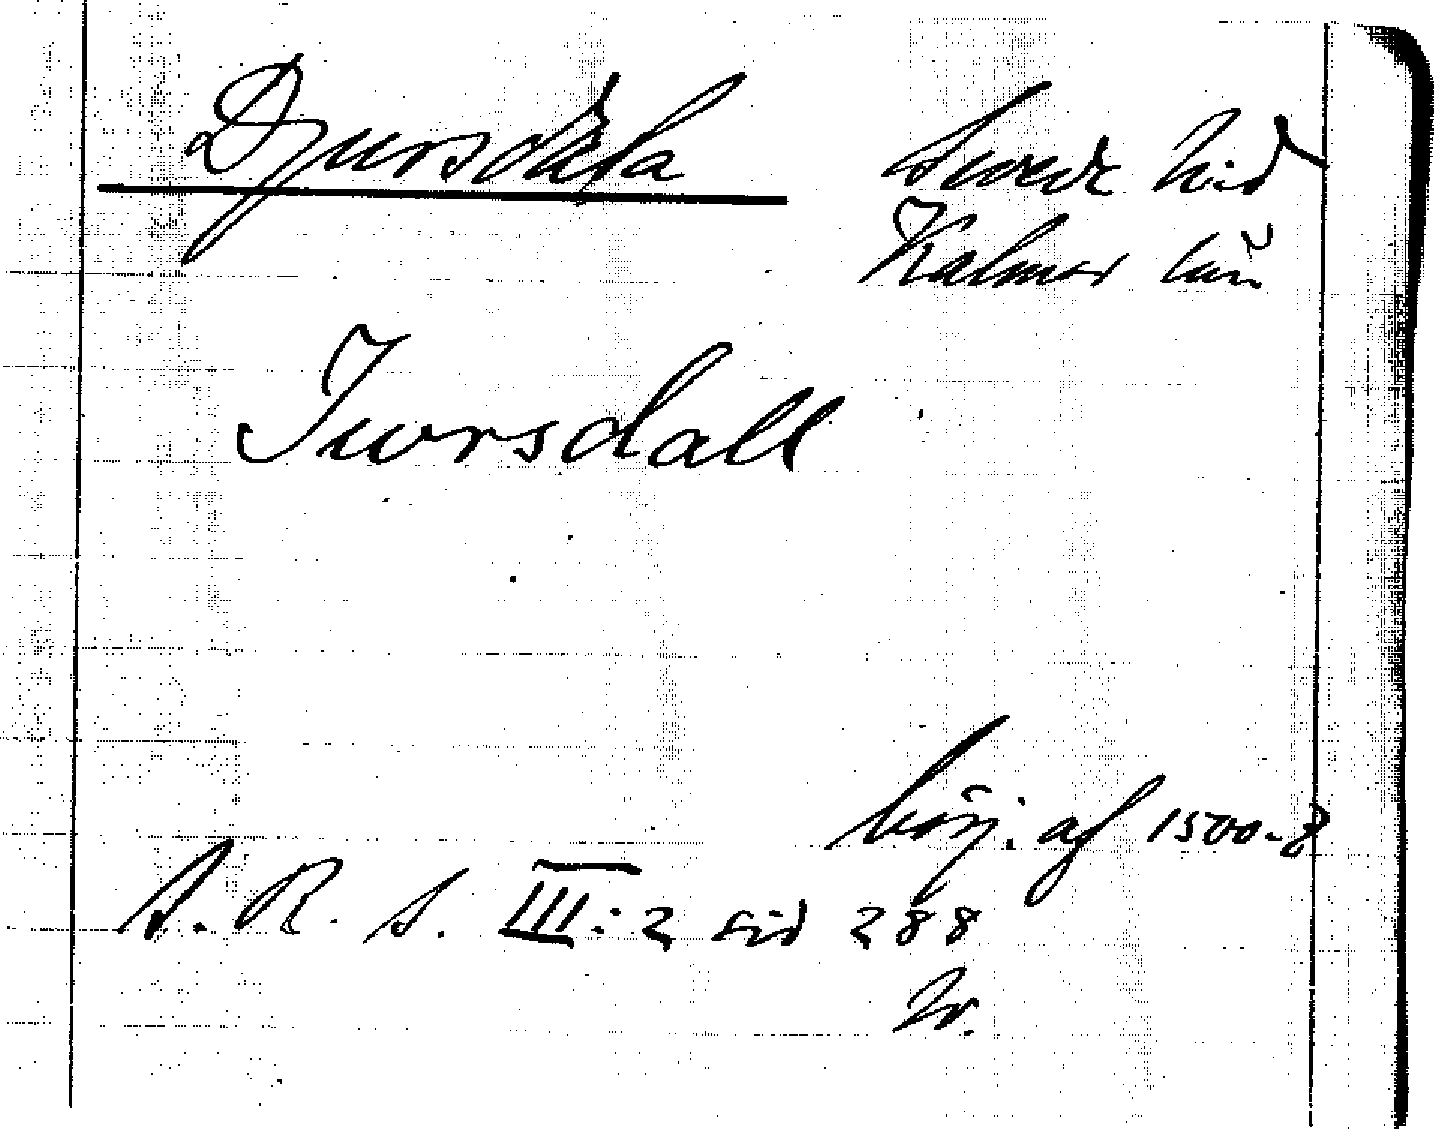 Djursdala
Sevede hd
Kalmar län
Jwrsdall
börj. af 1500-t
S. R. S. III: 2 sid 288